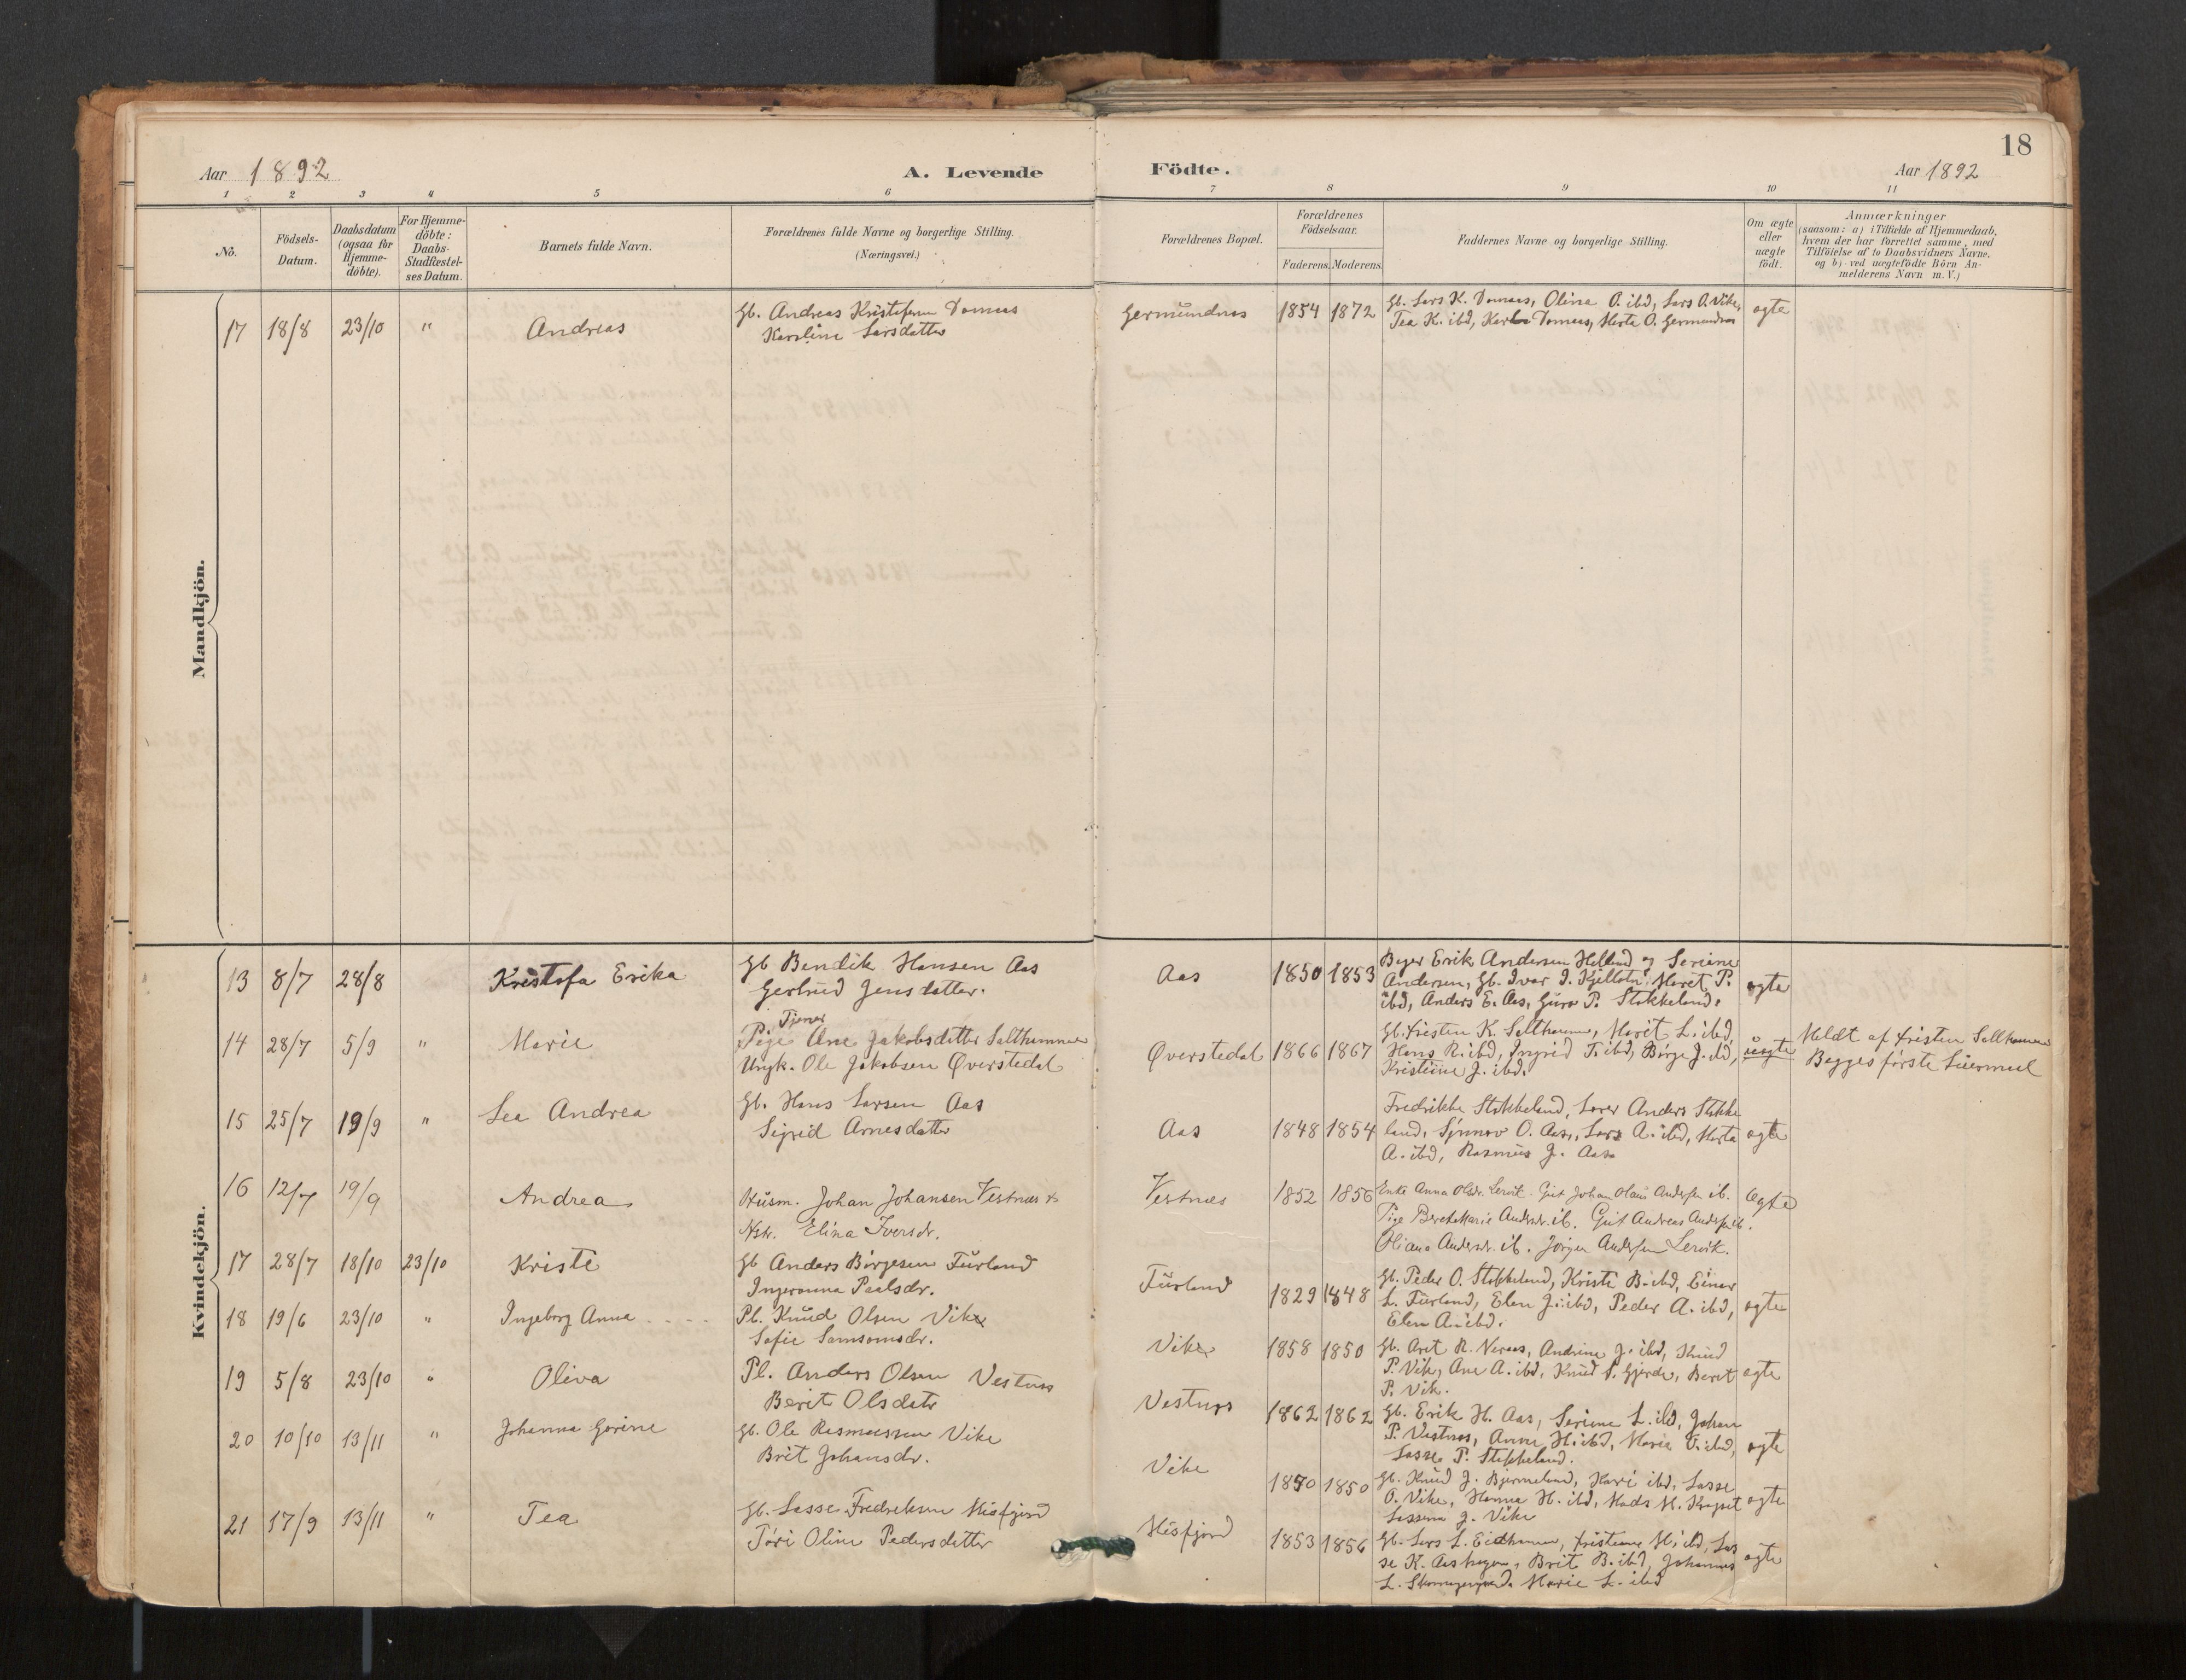 18
Aar 1892
A. Levende
Födte.
Aar 1892
1 2 3 4 5 6 7 8 9 10 11
No.
Födsels-
Datum.
Daabsdatum
(ogsaa for
Hjemme-
döbte).
For Hjemme-
döbte:
Daabs-
Stadfæstel-
ses Datum.
Barnets fulde Navn.
Forældrenes fulde Navne og borgerlige Stilling.
(Næringsvei.)
Forældrenes Bopæl.
Forældrenes
Födselsaar.
Faderens. Moderens.
Faddernes Navne og borgerlige Stilling.
Om ægte
eller
uægte
födt.
Anmærkninger
(saasom: a) i Tilfælde af Hjemmedaab,
hvem der har forrettet samme, med
Tilföielse af to Daabsvidners Navne,
og b) ved uægtefödte Börn An-
melderens Navn m. V.)
Mandkjön.
17 18/8 23/10 " Andreas
Gb. Andreas Kristofersen Tomaas
Karoline Larsdatter
Germundnes 1854 1872
Gb. Lars K. Tomaas, Olina O. ibd, Lars O. Vike,
Tea K. ibd, Tomaas, Marta O. Germundnes
ægte
Kvindekjön.
13 8/7 28/8 Kristofa Erika
Gb Bendik Hansen Aas
Gertrud Jensdatter.
Aas 1850 1853
Erik Andersen Helland og Seriane
Andersen, Gb. Ivar I. Maret P.
ibd, Anders E. Aas, Guro P. Stokkeland.
ægte
14 28/7 5/9 " Marie
Tjener
Pige Ane Jakobsdatter Salthammer
Ungk. Ole Jakobsen Øverstedal
Øverstedal 1866 1867
Gb. Kristen K. Salthammer, Marit L. ibd,
Hans R. ibd, Ingrid T. ibd, Børge J. ibd,
Kristine J. ibd.
uægte
Meldt af Kristen Salthammer
Begges første Leiermaal
15 25/7 19/9 " Lea Andrea
Gb. Hans Larsen Aas
Sigrid Arnesdatter
Aas 1848 1854
Fredrikke Stokkeland, Anders Stokke
land, Synnøv O. Aas, Lars A. ibd, Marta
A. ibd, Rasmus J. Aas
ægte
16 12/7 19/9 Andrea
Husm. Johan Johansen Vestnæs &
Hstr. Elina Iversdr.
Vestnæs 1852 1856
Enke Anna Olsdr. Lervik. Gut Johan Olaus Andersen ib.
Pige Beret Marie Andersdr. ib. Gut Andreas Andersen ib.
Oliana Andersdr. ib. Jørgen Andersen Lervik.
ægte
17 28/7 18/10 23/10 Kriste
Gb Anders Børgesen Furland
Ingeranna Paalsdr.
Furland 1829 1848
Gb. Peder O. Stokkeland, Kristi B. ibd, Einar
L. Furland, Elen J. ibd, Peder A. ibd,
Elen A. ibd.
ægte
18 19/6 23/10 " Ingeborg Anna
Pl. Knud Olsen Vike
Sofie Samsonsdr.
Vike 1858 1850
Gb. Aret R. Neraas, Andrine J. ibd, Knud
P. Vik, Ane A. ibd, Knud S. Gjerde, Beret
P. Vik.
ægte
19 5/8 23/10 " Oliva
Pl. Anders Olsen Vestnes
Berit Olsdatr
Vestnes 1862 1862
Gb. Erik H. Aas, Seriane L. ibd, Johan
P. Vestnes, Anne H. ibd, Marie O. ibd,
Lasse P. Stokkeland.
ægte
20 10/10 13/11 " Johanna Gorine
Gb. Ole Rasmussen Vike
Brit Johansdr.
Vike 1850 1850
Gb. Knud J. Bjermeland, Kari ibd, Lasse
O. Vike, Hanna H. ibd, Mads M.
J. Vike
ægte
21 17/9 13/11 " Tea
Gb. Lasse Fredriksen Misfjord
Tøri Oline Pedersdatter
Misfjord 1853 1856
Gb. Lars L. Eidhammer, Kristiane M. ibd, Las
se K. Aashagen, Brit B. ibd, Johannes
L. Marie L. ibd
ægte